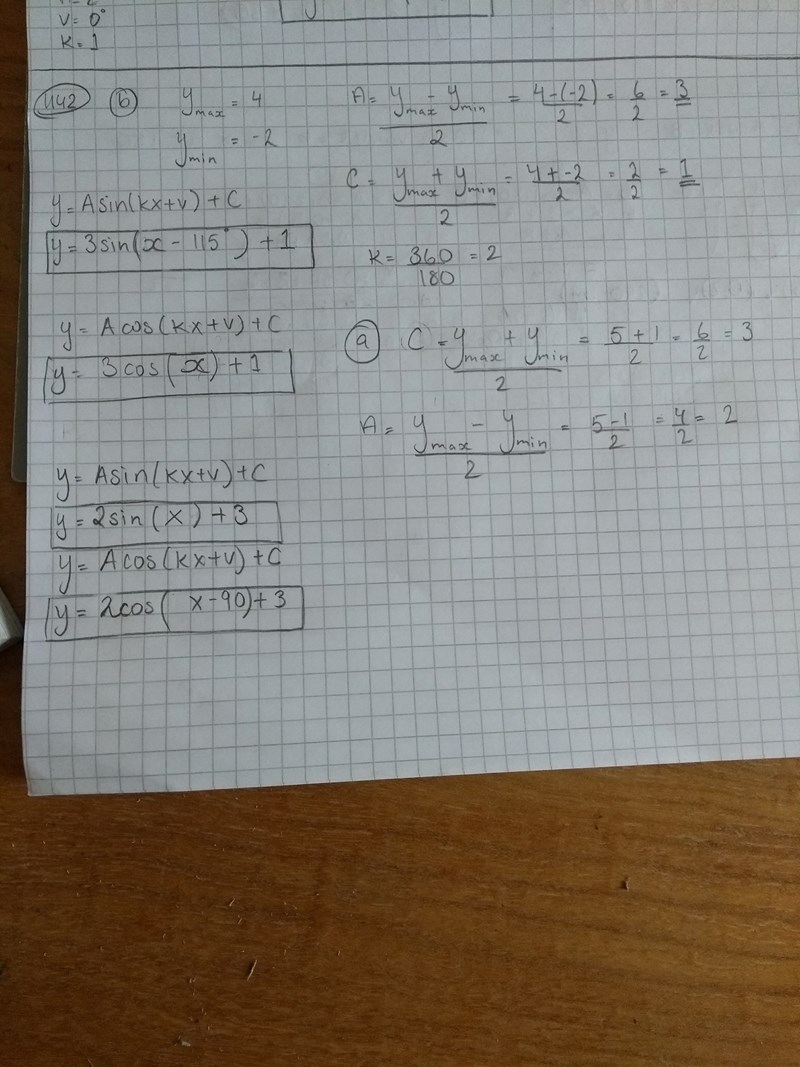 V = 0°
K = 1
1142 b) y max = 4
y min = -2
A = (y max - y min)/2 = (4-(-2))/2 = 6/2 = 3
C = (y max + y min)/2 = (4+-2)/2 = 2/2 = 1
K = 360/180 = 2
y = A sin(kx+v) + C
y = 3 sin(x - 115°) + 1
y = A cos(kx+v) + C
y = 3 cos(x) + 1
a) C = (y max + y min)/2 = (5+1)/2 = 6/2 = 3
A = (y max - y min)/2 = (5-1)/2 = 4/2 = 2
y = A sin(kx+v) + C
y = 2 sin(x) + 3
y = A cos(kx+v) + C
y = 2 cos( x-90) + 3